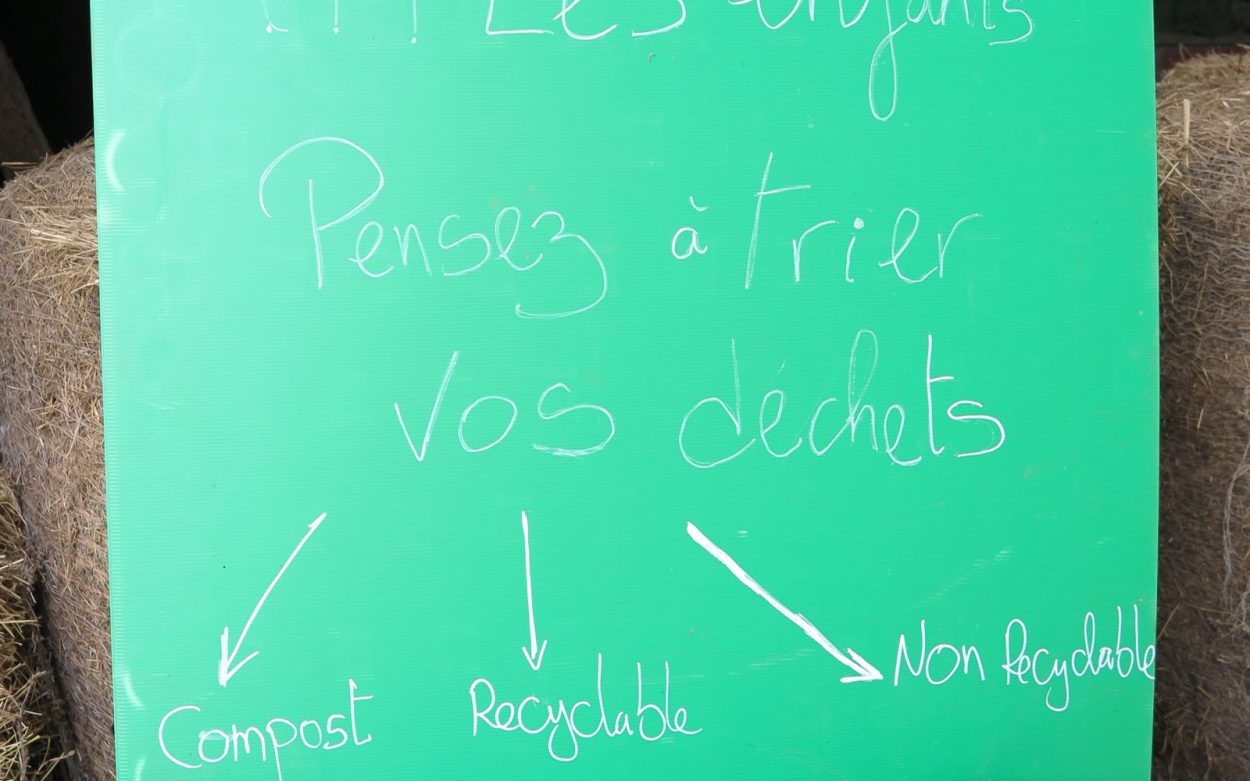 !!! Les enfants
Pensez à trier
vos déchets
Compost Recyclable Non Recyclable